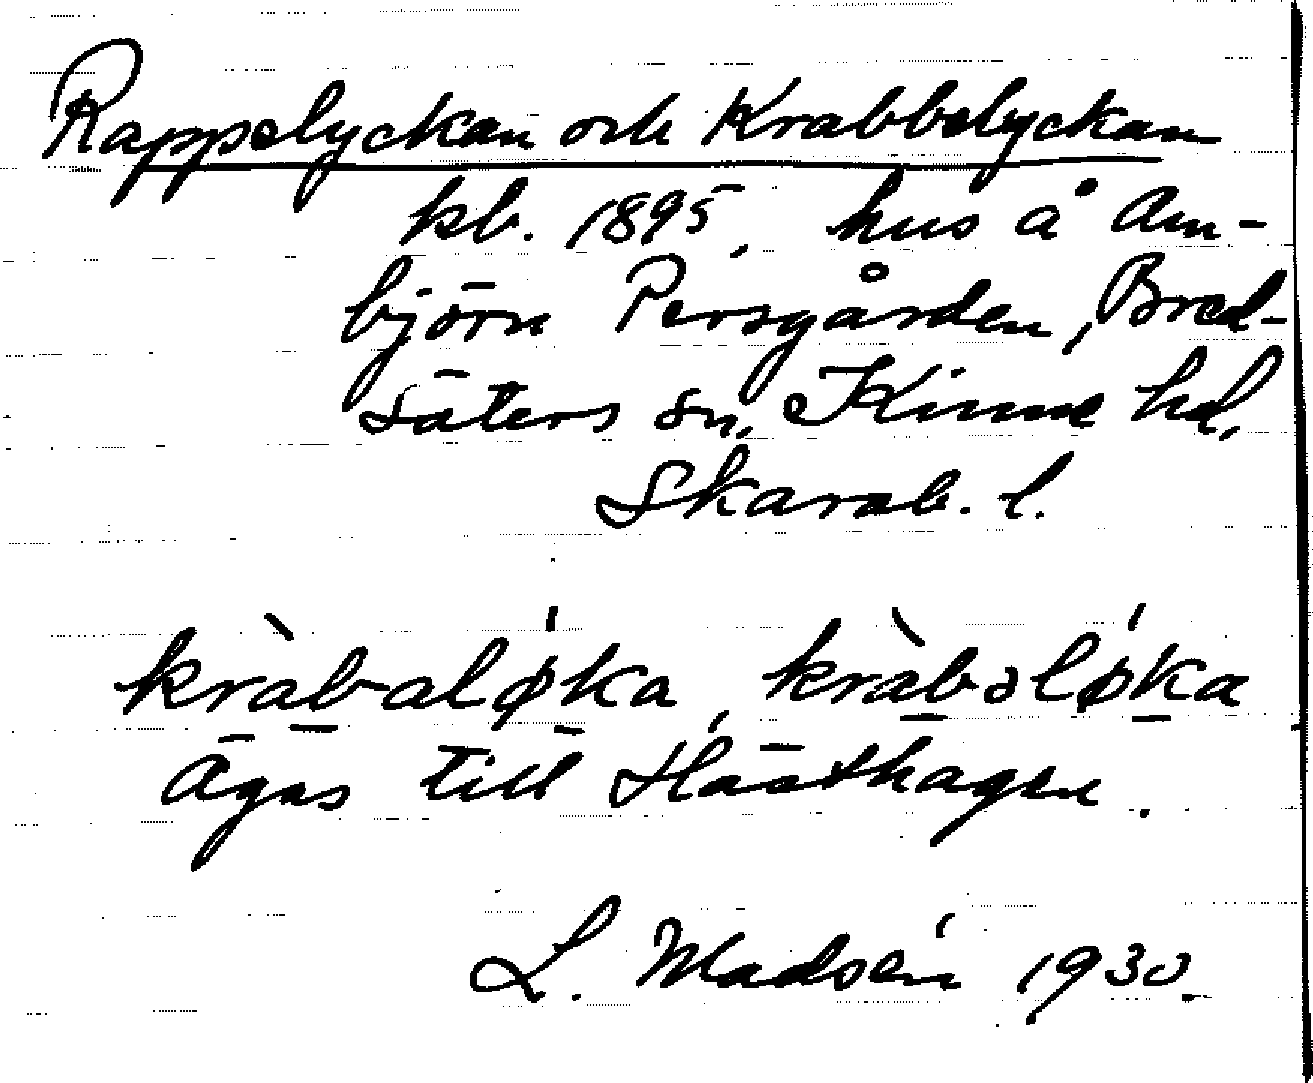 Rappelyckan och Krabbelyckan
kb. 1895, hus å Am-
björn Persgården, Bred-
säters sn, Kinne hd,
Skarab. l.
kràbalǿka, kràbəlǿka
Ägas till Hästhagen.
L. Madsén 1930.